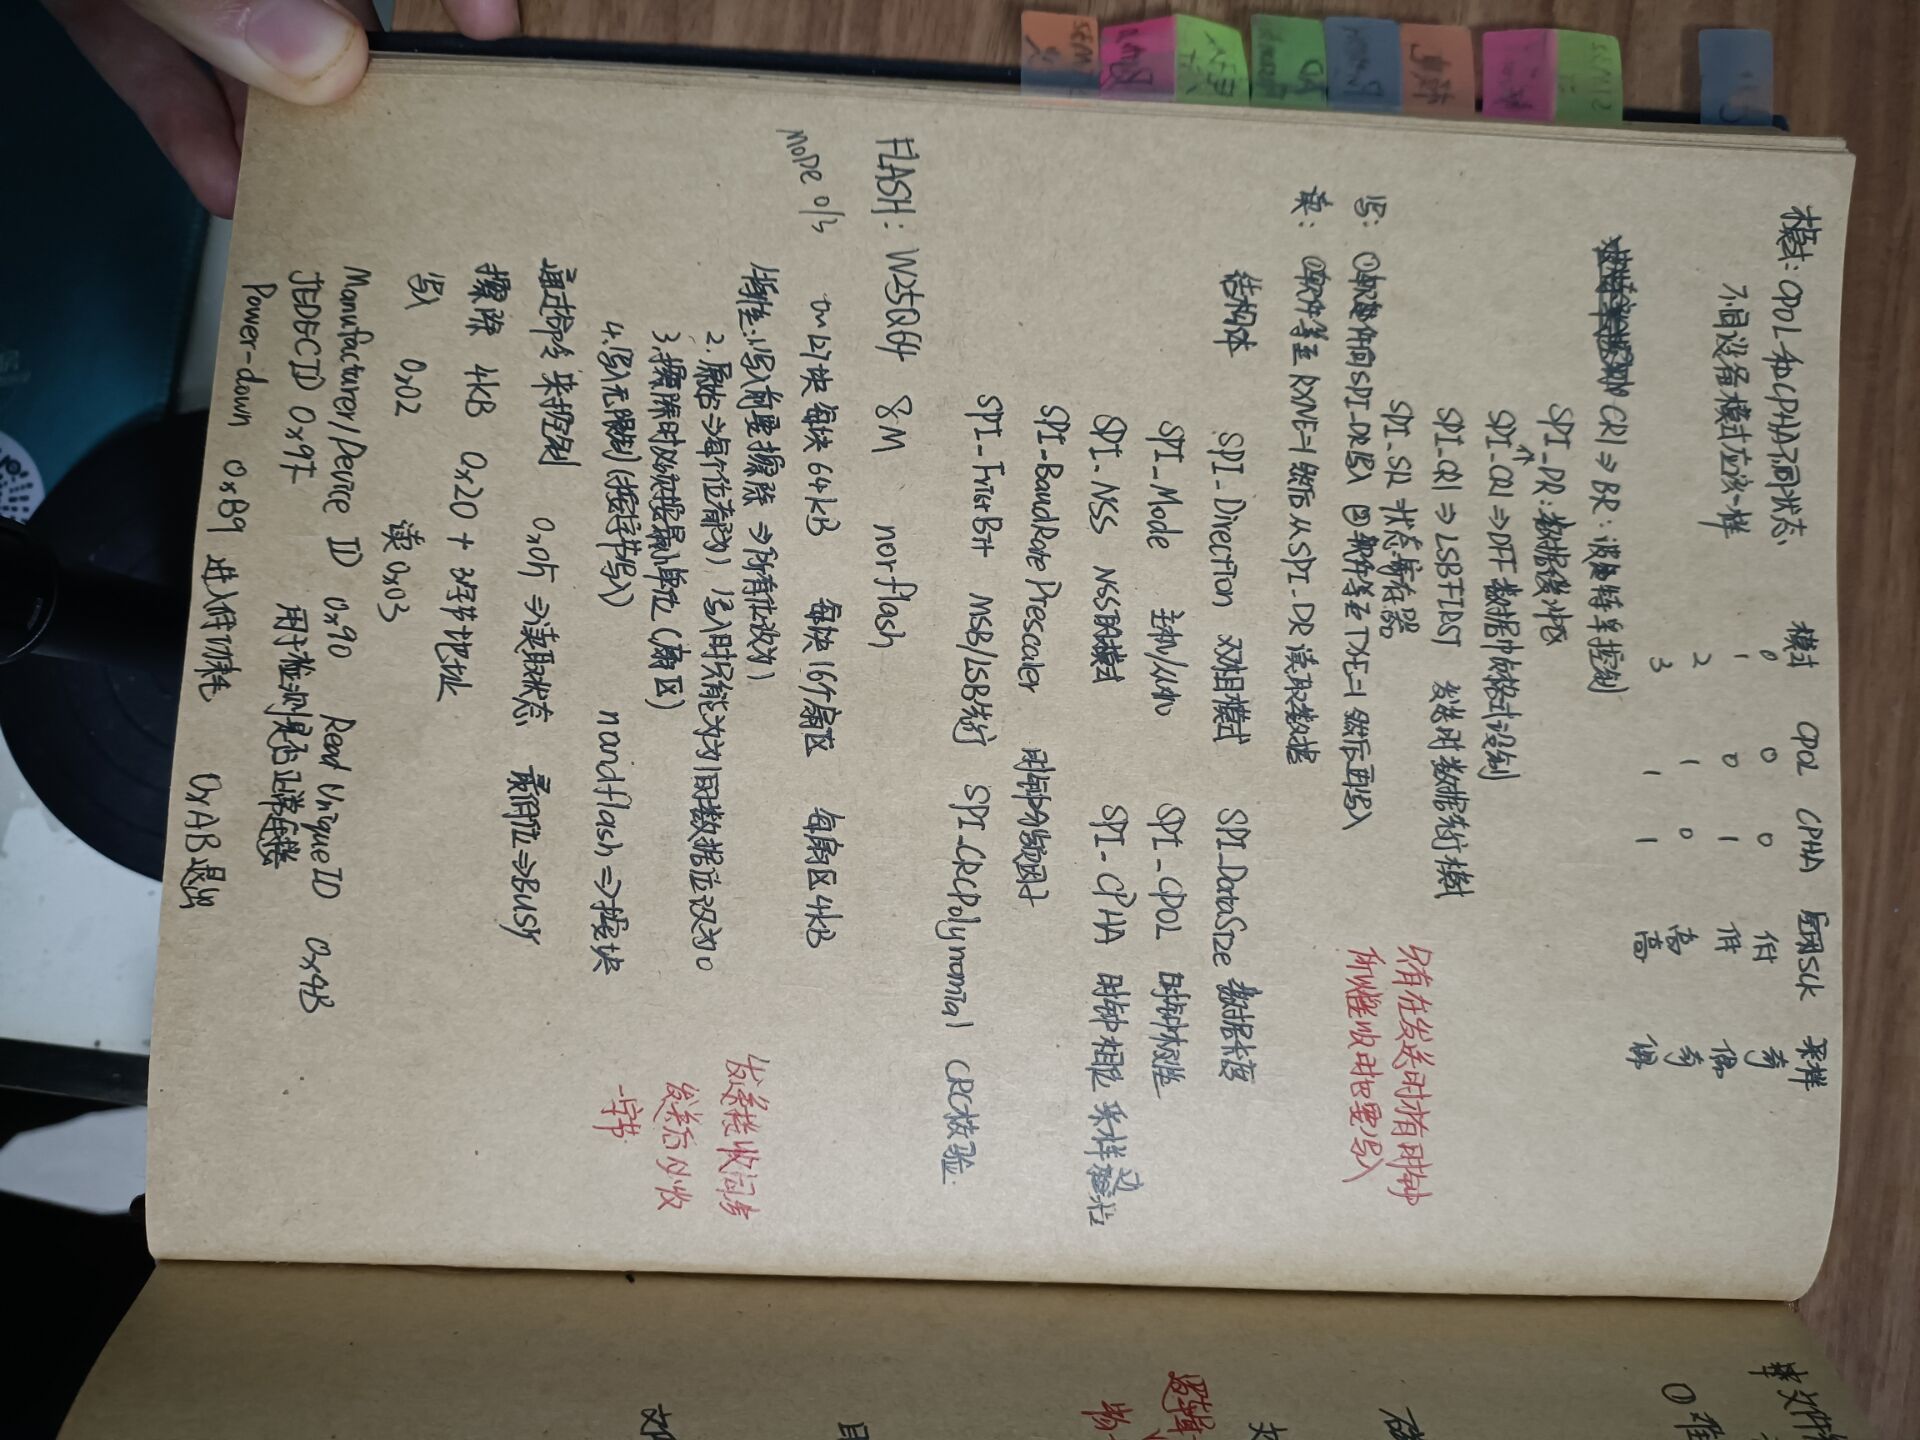 模式: CPOL和CPHA不同状态、
不同设备模式应该一样
模式 CPOL CPHA 空闲SCK 采样
0 0 0 低 奇
1 0 1 低 偶
2 1 0 高 奇
3 1 1 高 偶
CR1⇒BR: 波特率控制
SPI_DR: 数据缓冲区
↑
SPI_CR1⇒DFF 数据帧格式设制
SPI_CR1⇒LSBFIRST 发送时数据先行模式
SPI_SR 状态寄存器
只有在发送时才有时钟
所以接收时也要写入
写: ①软件向SPI_DR写入 ②软件等至TXE=1 然后再写入
读: ①软件等至RXNE=1 然后从SPI_DR读取数据
结构体 SPI_Direction 双相模式 SPI_DataSize 数据长度
SPI_Mode 主机/从机 SPI_CPOL 时钟极性
SPI_NSS NSS的模式 SPI_CPHA 时钟相位 采样边
SPI_BaudRatePrescaler 时钟分频因子
SPI_FristBit MSB/LSB先行 SPI_CRCPolynomial CRC校验
FLASH: W25Q64 8M norflash
MODE 0/3
0~127块 每块64kB 每块16个扇区 每扇区4kB
特性:1.写入前要擦除⇒所有位改为1
2.原始⇒每个位都为1 写入时只能为为1的数据位改为0
3.擦除时必须按最小单位(扇区)
4.写入无限制(按字节写入) nandflash⇒按块
发送接收同步
发送后必收
一字节
通过命令来控制 0x05⇒读取状态 最低位⇒BUSY
擦除 4kB 0x20+3字节地址
写入 0x02 读0x03
Manufacturer/Device ID 0x90 Read UniqueID 0x4B
JEDECID 0x9F 用于检测是否正常连接
Power-down 0xB9 进入低功耗 0xAB退出